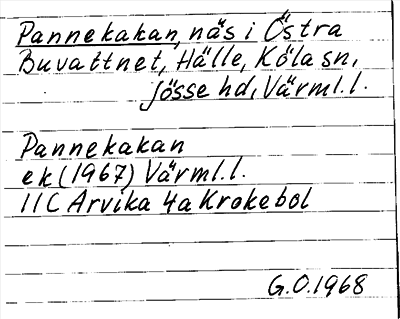 Pannekakan, näs i Östra
Buvattnet, Hälle, Köla sn,
Jösse hd, Värml. l.
Pannekakan
ek (1967) Värml. l.
11C Arvika 4a Krokebol
G.O. 1968